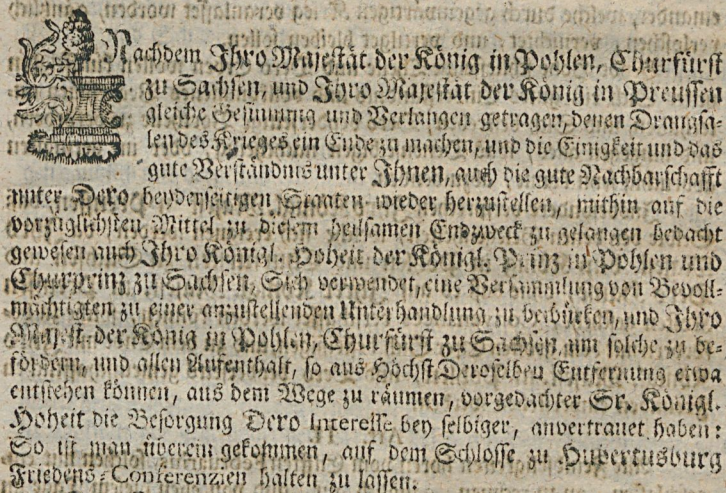 Nachdem Ihro Majestät der König in Pohlen, Churfürst
zu Sachsen, und Ihro Majestät der König in Preussen
gleiche Gesinnung und Verlangen getragen, denen Drangsa-
len des Krieges ein Ende zu machen, und die Einigkeit und das
gute Verständnis unter Ihnen, auch die gute Nachbarschafft
unter Dero beyderseitigen Staaten wieder herzustellen, mithin auf die
vorzüglichsten Mittel zu diesem heilsamen Endzweck zu gelangen bedacht
gewesen auch Ihro Königl. Hoheit der Königl. Prinz in Pohlen und
Churprinz zu Sachsen, Sich verwendet, eine Versammlung von Bevoll-
mächtigten zu einer anzustellenden Unterhandlung zu beibürken, und Ihro
Majest. der König in Pohlen, Churfürst zu Sachsen um solche zu be-
fördern, und allen Aufenthalt, so aus Höchst Deroselben Entfernung etwa
entstehen können, aus dem Wege zu räumen, vorgedachter Sr. Königl.
Hoheit die Besorgung Dero Interesse bey selbiger, anvertrauet haben:
So ist man überein gekommen, auf dem Schlosse zu Hubertusburg
Friedens-Conferenzien halten zu lassen.